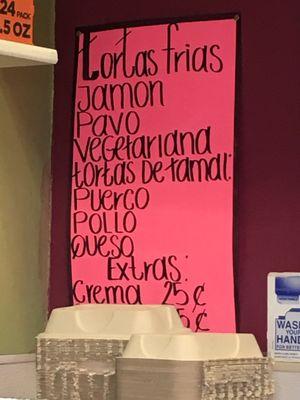 24 PACK
.5 OZ
tortas frias
Jamon
Pavo
Vegetariana
tortas De tamal:
Puerco
Pollo
Queso
Extras:
Crema 25¢
¢
WASH
YOUR
HAND
FOR BETTER